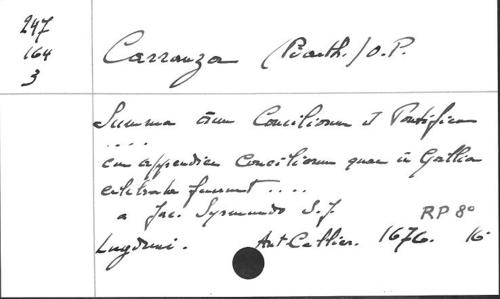 247
164
3
Carranza (Barth.) O.P.
Summa õium Conciliorum & Pontificum
....
cum appendice Conciliorum quae in Gallia
celebrata fuerunt ....
a Jac. Syrmundo S.J.
RP 8º
Lugduni. Ant. Cellier. 1676. 16